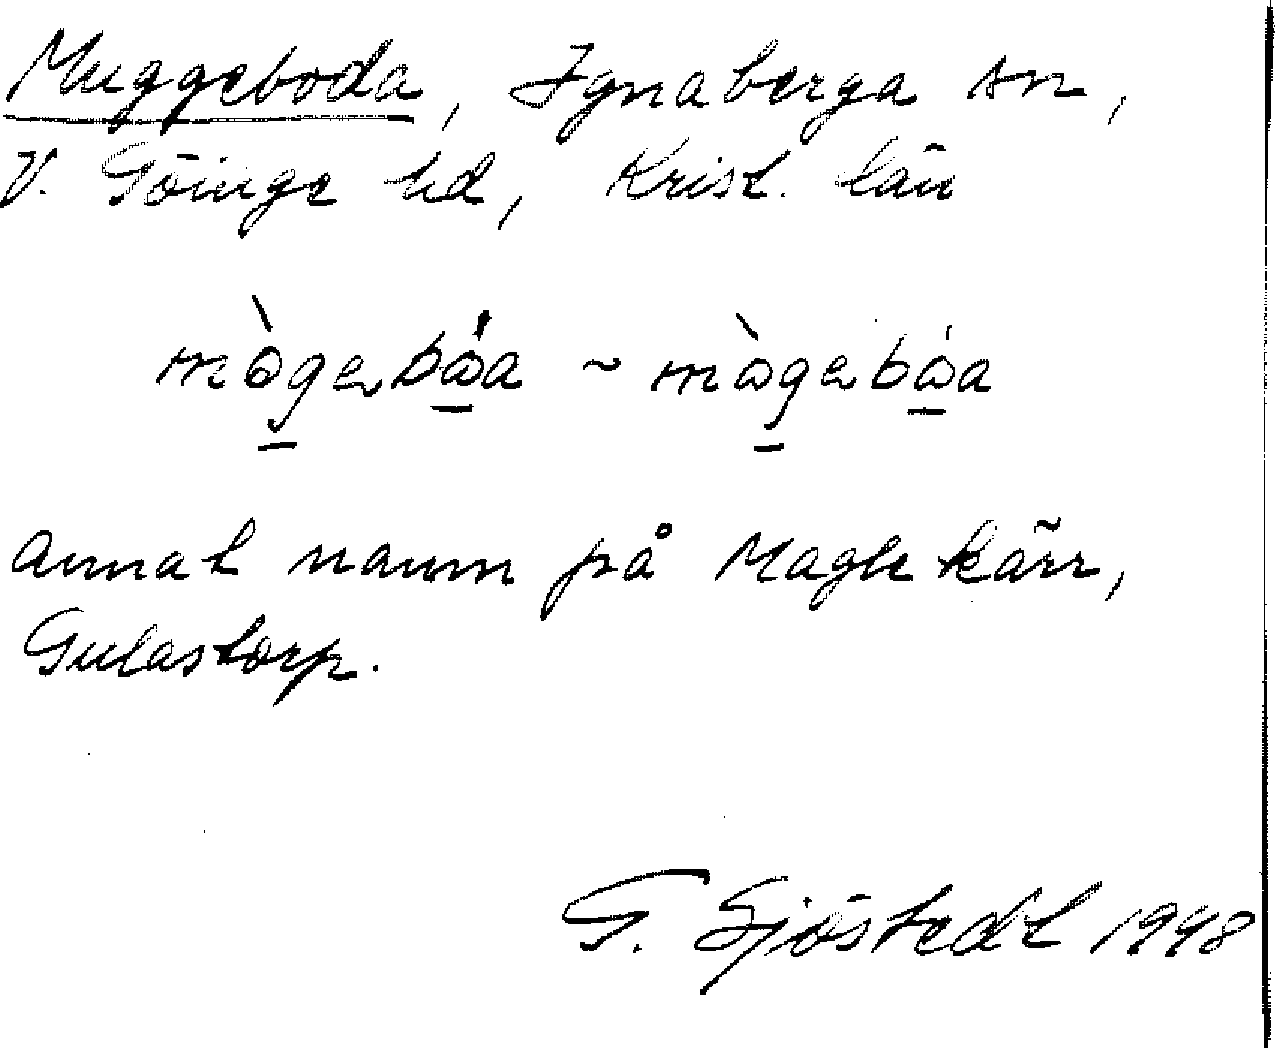 Muggeboda, Ignaberga sn,
V. Göinge hd, Krist. län
mògebá̊a ~ mὼgebώa
annat namn på Maglekärr,
Gulastorp.
G. Sjöstedt 1948